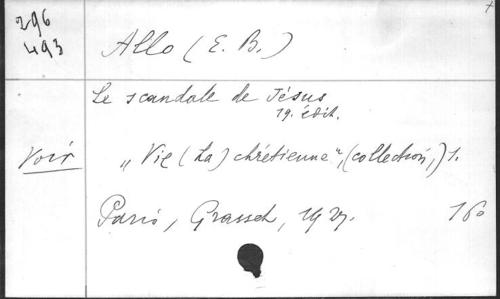 296
493
Allo (E. B.)
Le scandale de Jésus
19. édit.
Voir
„Vie (La) chrétienne", (collection,) 1.
Paris, Grasset, 1927.
160